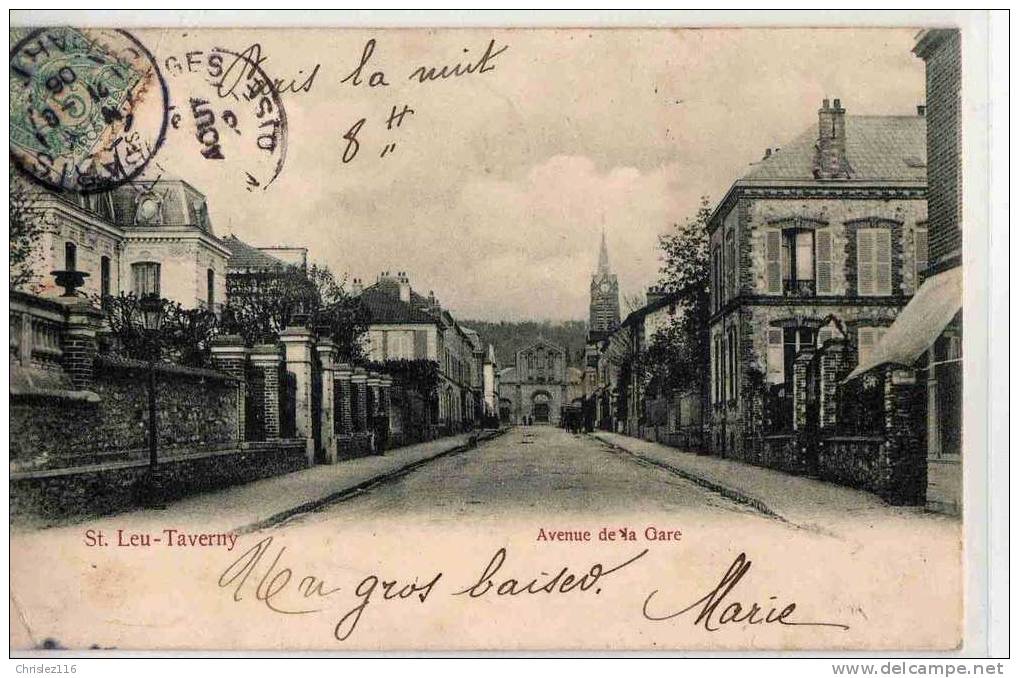 PARIS
PARIS
06
OISE
AOUT
Pris la nuit
8"
St. Leu-Taverny
Avenue de la Gare
Un gros baiser.
Marie
Chrislez116
delcampe.net